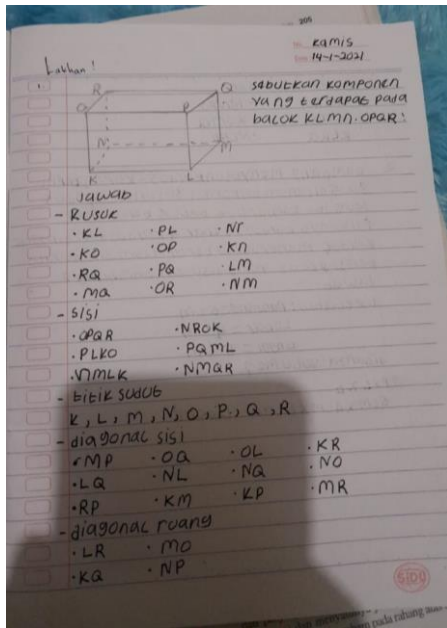 200
no. Kamis
Date 14-1-2021
Latihan!
1. R Q sebutkan komponen
O P yang terdapat pada
N M balok KLMN.OPQR!
K L
Jawab
- Rusuk
· KL · PL · Nr
· KO · OP · Kn
· RQ · PQ · LM
· MQ · OR · NM
- sisi
· OPQR · NROK
· PLKO · PQML
· NMLK · NMQR
- titik sudut
K, L, M, N, O, P, Q, R
- diagonal sisi
· MP · OQ · OL · KR
· LQ · NL · NQ · NO
· RP · KM · KP · MR
- diagonal ruang
· LR · MO
· KQ · NP
SIDU
pada rahang atas